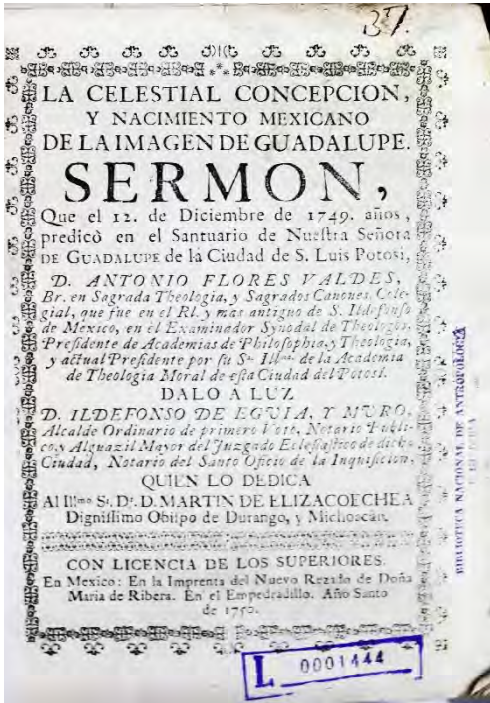 37.
LA CELESTIAL CONCEPCION,
Y NACIMIENTO MEXICANO
DE LA IMAGEN DE GUADALUPE.
SERMON,
Que el 12. de Diciembre de 1749. años,
predicò en el Santuario de Nueſtra Señora
DE GUADALUPE de la Ciudad de S. Luis Potosi,
D. ANTONIO FLORES VALDES,
Br. en Sagrada Theologia, y Sagrados Canones, Cole-
gial, que fue en el Rl. y mas antiguo de S. Ildefonso
de Mexico, en el Examinador Synodal de Theologos,
Preſidente de Academias de Philoſophia, y Theologia,
y actual Preſidente por ſu Sa. Illma. de la Academia
de Theologia Moral de eſta Ciudad del Potosí.
DALO A LUZ
D. ILDEFONSO DE EGUIA, Y MURO,
Alcalde Ordinario de primero Voto, Notario Publi-
co, y Alguazil Mayor del Juzgado Ecleſiaſtico de dicha
Ciudad, Notario del Santo Oficio de la Inquiſicion,
QUIEN LO DEDICA
Al Illmo Sr. Dr. D. MARTIN DE ELIZACOECHEA
Digniſſimo Obiſpo de Durango, y Michoacàn.
CON LICENCIA DE LOS SUPERIORES.
En Mexico: En la Imprenta del Nuevo Rezado de Doña
Maria de Ribera. En el Empedradillo. Año Santo
de 1750.
BIBLIOTECA NACIONAL DE ANTROPOLOGIA
L 0001444